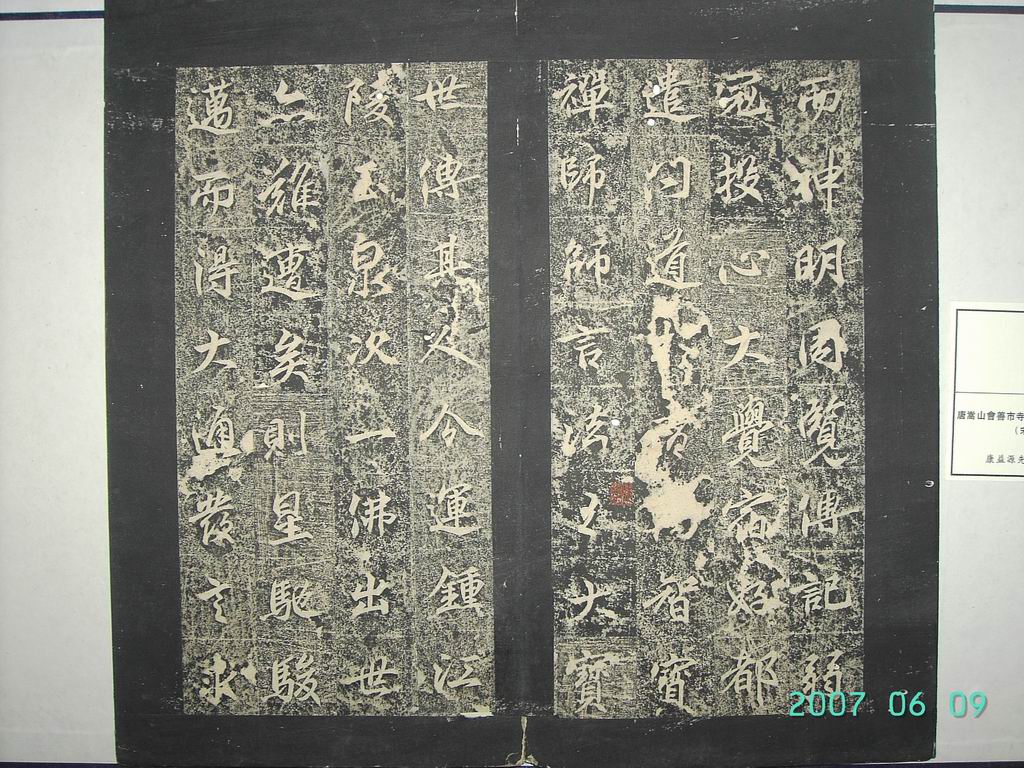 而神明周覽傳記弱
冠投心大覺宿好都
遣問道智寶
禪師師言法王大寶
世傳其人今運鍾江
陵玉泉次一佛出世
亦難遭矣則星馳駿
邁而得大通發言求
唐嵩山會善市寺
康益源先
2007 06 09